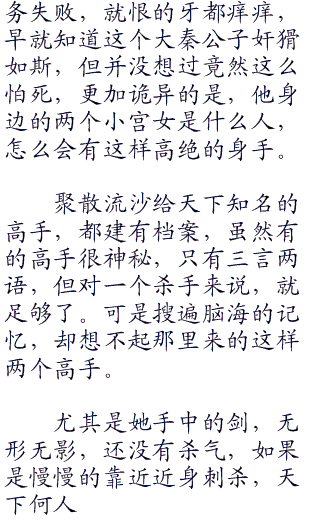 务失败，就恨的牙都痒痒，
早就知道这个大秦公子奸猾
如斯，但并没想过竟然这么
怕死，更加诡异的是，他身
边的两个小宫女是什么人，
怎么会有这样高绝的身手。
聚散流沙给天下知名的
高手，都建有档案，虽然有
的高手很神秘，只有三言两
语，但对一个杀手来说，就
足够了。可是搜遍脑海的记
忆，却想不起那里来的这样
两个高手。
尤其是她手中的剑，无
形无影，还没有杀气，如果
是慢慢的靠近近身刺杀，天
下何人